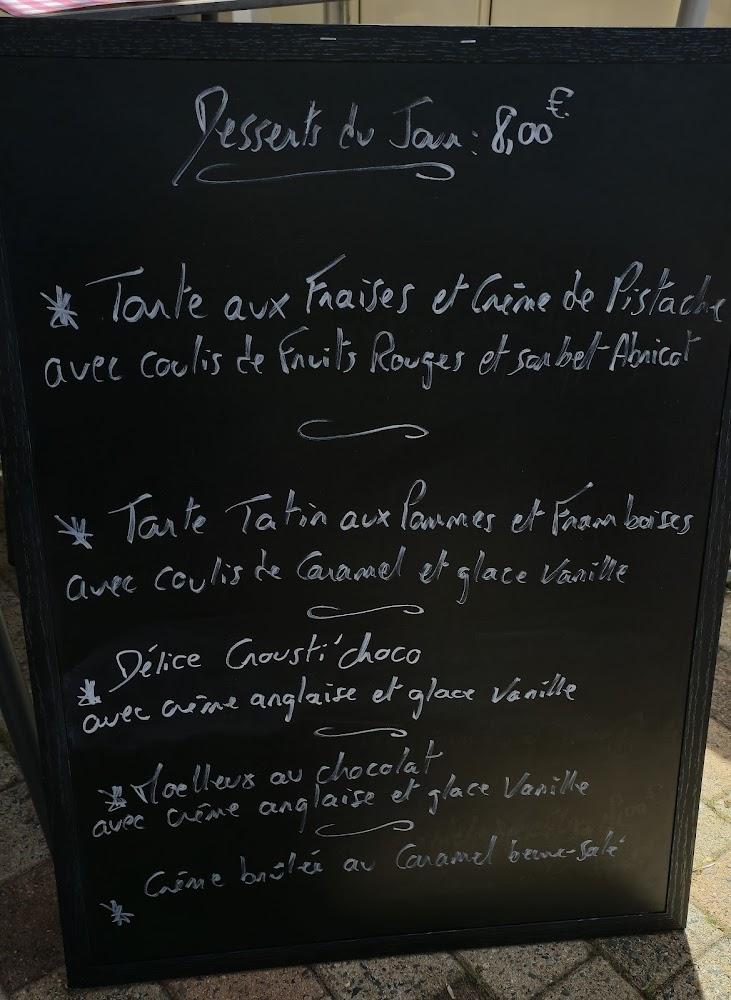 Desserts du Jour : 8,00€
* Tarte aux Fraises et Crème de Pistache
avec coulis de Fruits Rouges et sorbet Abricot
* Tarte Tatin aux Pommes et Framboises
avec coulis de Caramel et glace Vanille
* Délice Crousti'choco
avec crème anglaise et glace Vanille
* Moelleux au chocolat
avec crème anglaise et glace Vanille
* Crème brûlée au Caramel beurre-salé